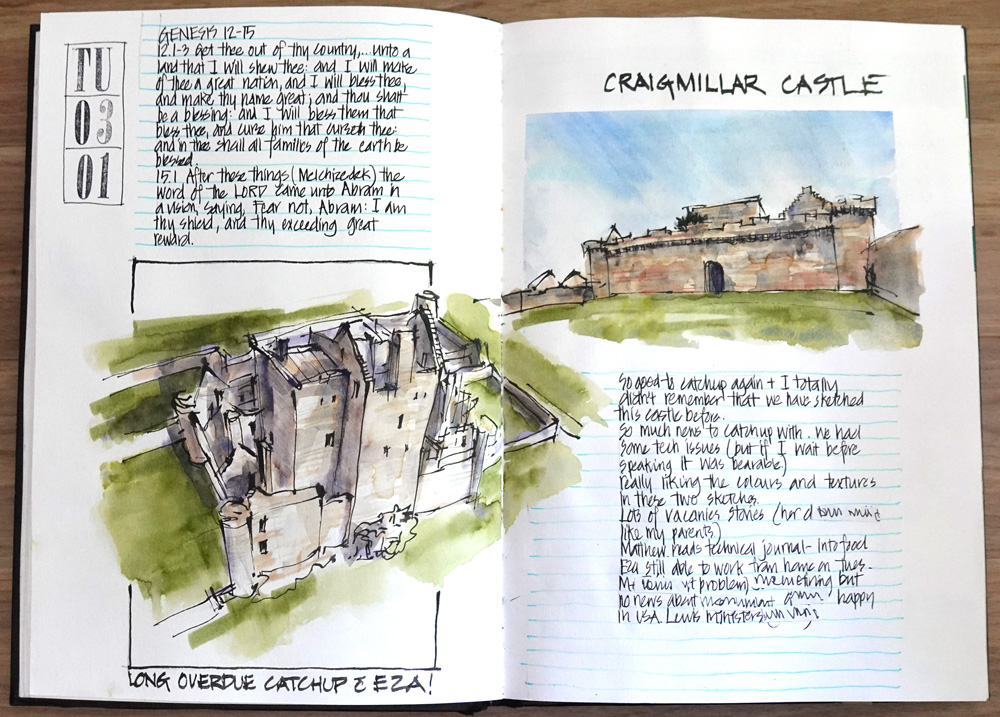 TU
03
01
GENESIS 12-15
12.1-3 Get thee out of thy country,... unto a
land that I will shew thee: and I will make
of thee a great nation, and I will bless thee,
and make thy name great; and thou shalt
be a blessing: and I will bless them that
bless thee, and curse him that curseth thee:
and in thee shall all families of the earth be
blessed.
15.1 After these things (Melchizedek) the
word of the LORD came unto Abram in
a vision, saying, Fear not, Abram: I am
thy shield, and thy exceeding great
reward.
LONG OVERDUE CATCHUP Ɛ EZA!
CRAIGMILLAR CASTLE
So good to catchup again + I totally
didn't remember that we have sketched
this castle before.
So much news to catchup with. We had
some tech issues (but if I wait before
speaking it was bearable)
really liking the colours and textures
in these two sketches.
Lots of vacanies stories (her d
like my parents)
Matthew reads technical journal- Into food
Eza still able to work from home on Tues-
problem) but
no news about happy
in USA. Lewis